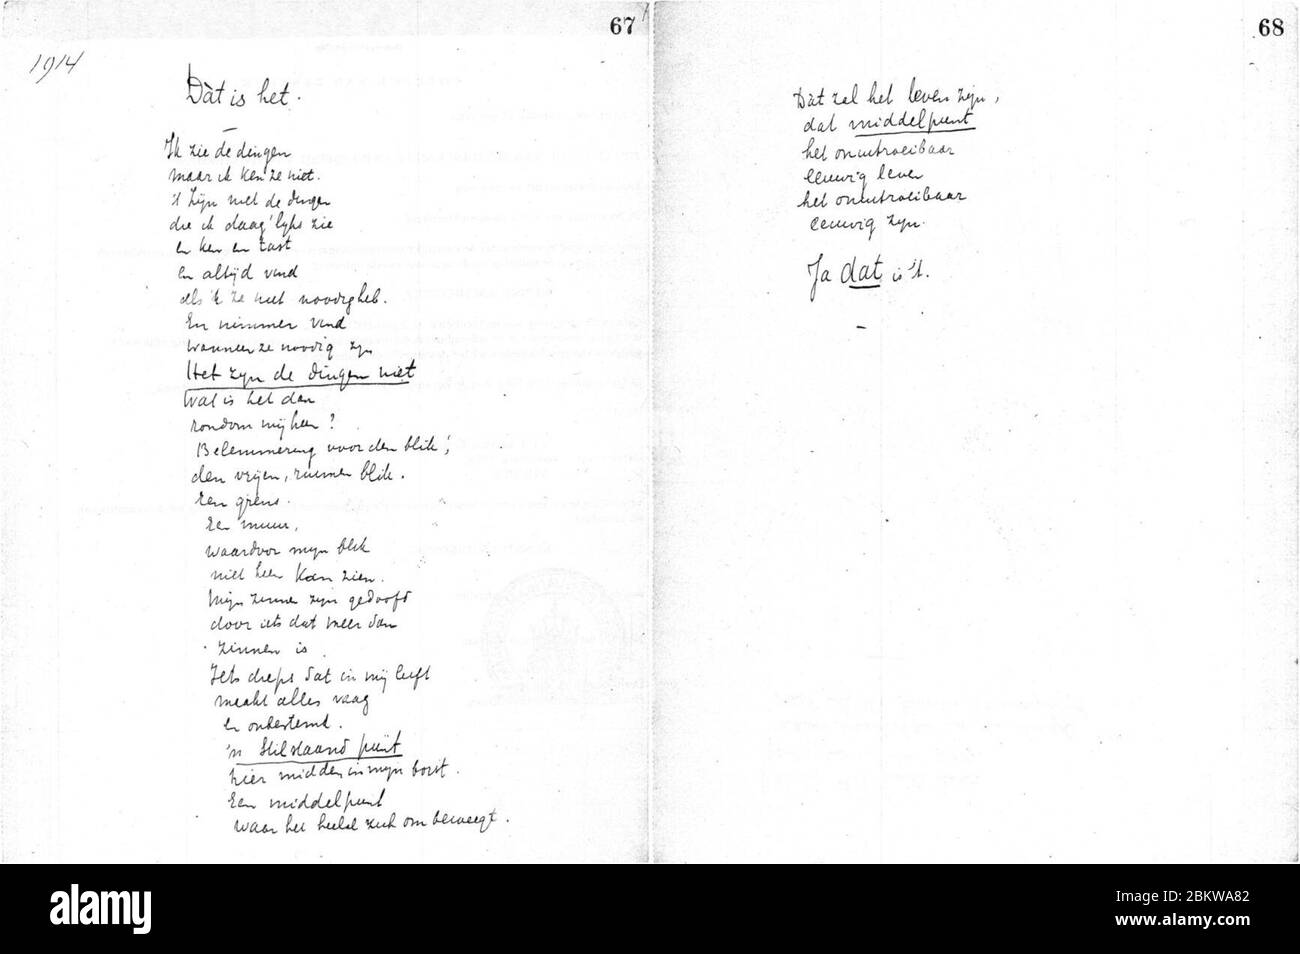 67
1914
Dàt is het.
Ik zie de dingen
maar ik ken ze niet.
't Zijn niet de dingen
die ik daag'lijks zie
en ken en tast
en altijd vind
als 'k ze niet noodig heb.
En nimmer vind
wanneer ze noodig zijn
Het zijn de dingen niet
Wat is het dan
rondom mij heen?
Belemmering voor den blik,
den vrijen, ruimen blik.
Een grens.
Een muur,
waardoor mijn blik
niet heen kan zien.
Mijn zinnen zijn gedoofd
door iets dat meer dan
zinnen is
Iets dieps dat in mij leeft
maakt alles vaag
en
'n Stilstaand punt
hier midden in mijn borst.
Een middelpunt
waar het heelal zich om beweegt.
68
Dàt zal het leven zijn,
dat middelpunt
het onuitroeibaar
eeuwig leven
het onuitroeibaar
eeuwig zijn.
Ja dat is 't.
alamy
Image ID: 2BKWA82
www.alamy.com